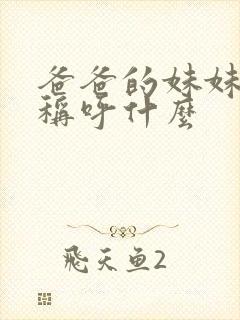 爸爸的妹妹
稱呼什麼
飛天鱼2